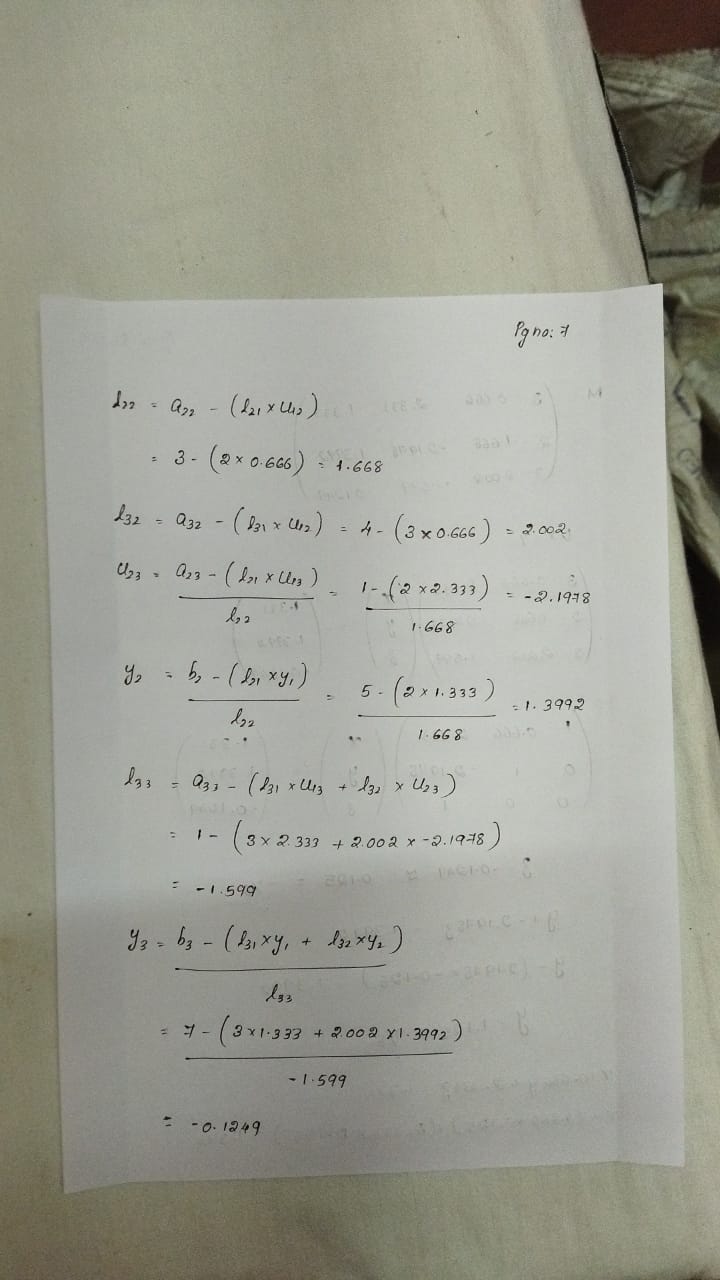 Pg no: 7
l22 = a22 - (l21 x u12)
= 3 - (2 x 0.666) = 1.668
l32 = a32 - (l31 x u12) = 4 - (3 x 0.666) = 2.002
u23 = a23 - (l21 x u13) / l22 = 1 - (2 x 2.333) / 1.668 = -2.1978
y2 = b2 - (l21 x y1) / l22 = 5 - (2 x 1.333) / 1.668 = 1.3992
l33 = a33 - (l31 x u13 + l32 x u23)
= 1 - (3 x 2.333 + 2.002 x -2.1978)
= -1.599
y3 = b3 - (l31 x y1 + l32 x y2)
l33
= 7 - (3 x 1.333 + 2.002 x 1.3992)
-1.599
= -0.1249